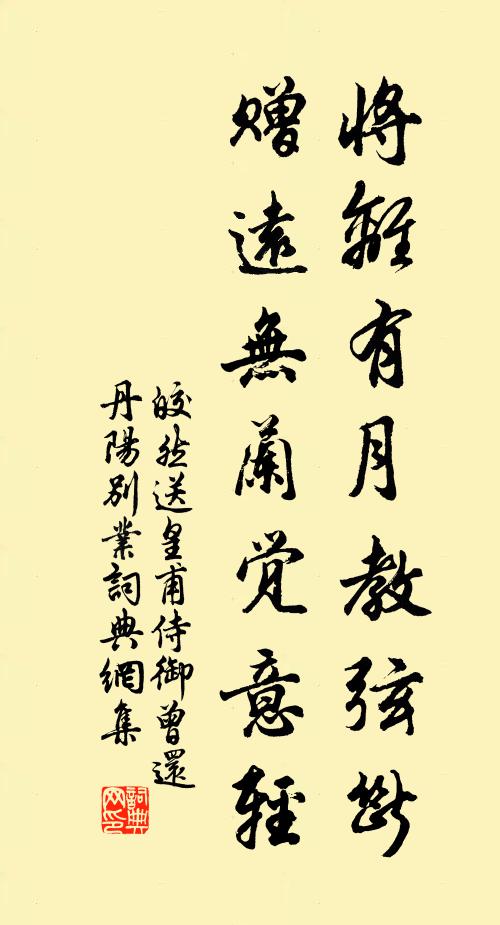 將離有月教弦斷
贈遠無蘭覺意輕
皎然送皇甫侍御曾還
丹陽別業詞典網集
詞典
网印